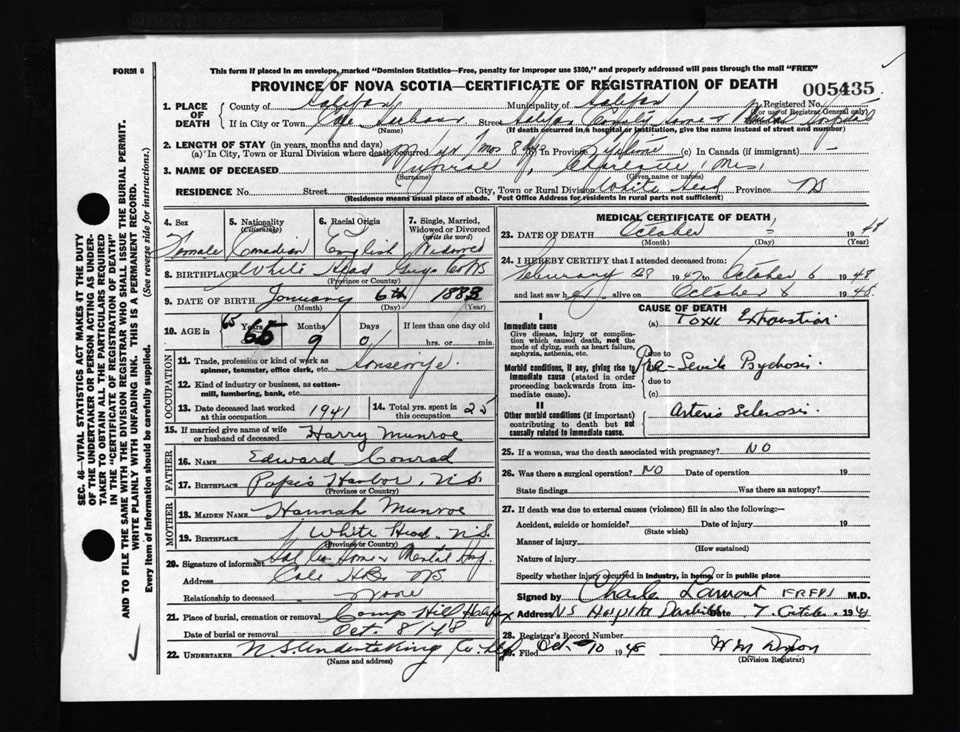 FORM 6
This form if placed in an envelope, marked "Dominion Statistics—Free, penalty for improper use $300," and properly addressed will pass through the mail "FREE"
PROVINCE OF NOVA SCOTIA—CERTIFICATE OF REGISTRATION OF DEATH
005435
1. PLACE OF DEATH
County of Halifax Municipality of Halifax Registered No.
(For use of Registrar General only)
If in City or Town Cole Harbour Street Halifax County Home & Mental Hospital
(Name) (If death occurred in a hospital or institution, give the name instead of street and number)
2. LENGTH OF STAY (in years, months and days)
(a) In City, Town or Rural Division where death occurred 1 yr 7 mos 8 dys (b) In Province Lifetime (c) In Canada (if immigrant) -
3. NAME OF DECEASED Munroe, Charlotte (Mrs)
(Surname) (Given name or names)
RESIDENCE No. Street City, Town or Rural Division White Head Province NS
(Residence means usual place of abode. Post Office Address for residents in rural parts not sufficient)
4. Sex Female
5. Nationality (Citizenship) Canadian
6. Racial Origin English
7. Single, Married, Widowed or Divorced (write the word) Widowed
8. BIRTHPLACE White Head Guys Co NS
(Province or Country)
9. DATE OF BIRTH January 6th 1883
(Month) (Day) (Year)
10. AGE in 65 Years 65 Months 9 Days 0 If less than one day old
hrs. or min.
OCCUPATION
11. Trade, profession or kind of work as spinner, teamster, office clerk, etc. Housewife
12. Kind of industry or business, as cotton-mill, lumbering, bank, etc.
13. Date deceased last worked at this occupation 1941
14. Total yrs. spent in this occupation 25
15. If married give name of wife or husband of deceased Harry Munroe
FATHER
16. NAME Edward Conrad
17. BIRTHPLACE Popes Harbor, N.S.
(Province or Country)
MOTHER
18. MAIDEN NAME Hannah Munroe
19. BIRTHPLACE White Head N.S.
(Province or Country)
20. Signature of informant Hal Co. Home & Mental Hosp.
Address Cole Hbr NS
Relationship to deceased None
21. Place of burial, cremation or removal Camp Hill Halifax
Date of burial or removal Oct. 8/48
22. UNDERTAKER N.S. Undertaking Co. Ltd
(Name and address)
MEDICAL CERTIFICATE OF DEATH
23. DATE OF DEATH October 19 48
(Month) (Day) (Year)
24. I HEREBY CERTIFY that I attended deceased from:
February 28 1947 to October 6 1948
and last saw her alive on October 6 1948.
CAUSE OF DEATH
I
Immediate cause
Give disease, injury or complication which caused death, not the mode of dying, such as heart failure, asphyxia, asthenia, etc.
(a) Toxic Exhaustion
due to
Morbid conditions, if any, giving rise to immediate cause (stated in order proceeding backwards from immediate cause).
(b) Senile Psychosis
due to
(c)
II
Other morbid conditions (if important) contributing to death but not causally related to immediate cause.
Arterio Sclerosis.
25. If a woman, was the death associated with pregnancy? NO
26. Was there a surgical operation? NO Date of operation 19
State findings Was there an autopsy?
27. If death was due to external causes (violence) fill in also the following:—
Accident, suicide or homicide? Date of injury 19
(State which)
Manner of injury
(How sustained)
Nature of injury
Specify whether injury occurred in industry, in home, or in public place
Signed by Charles Lamont M.D.
Address N S Hospital Dartmouth Date 7 October 19
28. Registrar's Record Number
29. Filed Oct 10 1948 W M Dixon
(Division Registrar)
SEC. 46—VITAL STATISTICS ACT MAKES IT THE DUTY
OF THE UNDERTAKER OR PERSON ACTING AS UNDER-
TAKER TO OBTAIN ALL THE PARTICULARS REQUIRED
IN THE "CERTIFICATE OF REGISTRATION OF DEATH"
AND TO FILE THE SAME WITH THE DIVISION REGISTRAR WHO SHALL ISSUE THE BURIAL PERMIT.
WRITE PLAINLY WITH UNFADING INK. THIS IS A PERMANENT RECORD.
Every item of information should be carefully supplied. (See reverse side for instructions.)